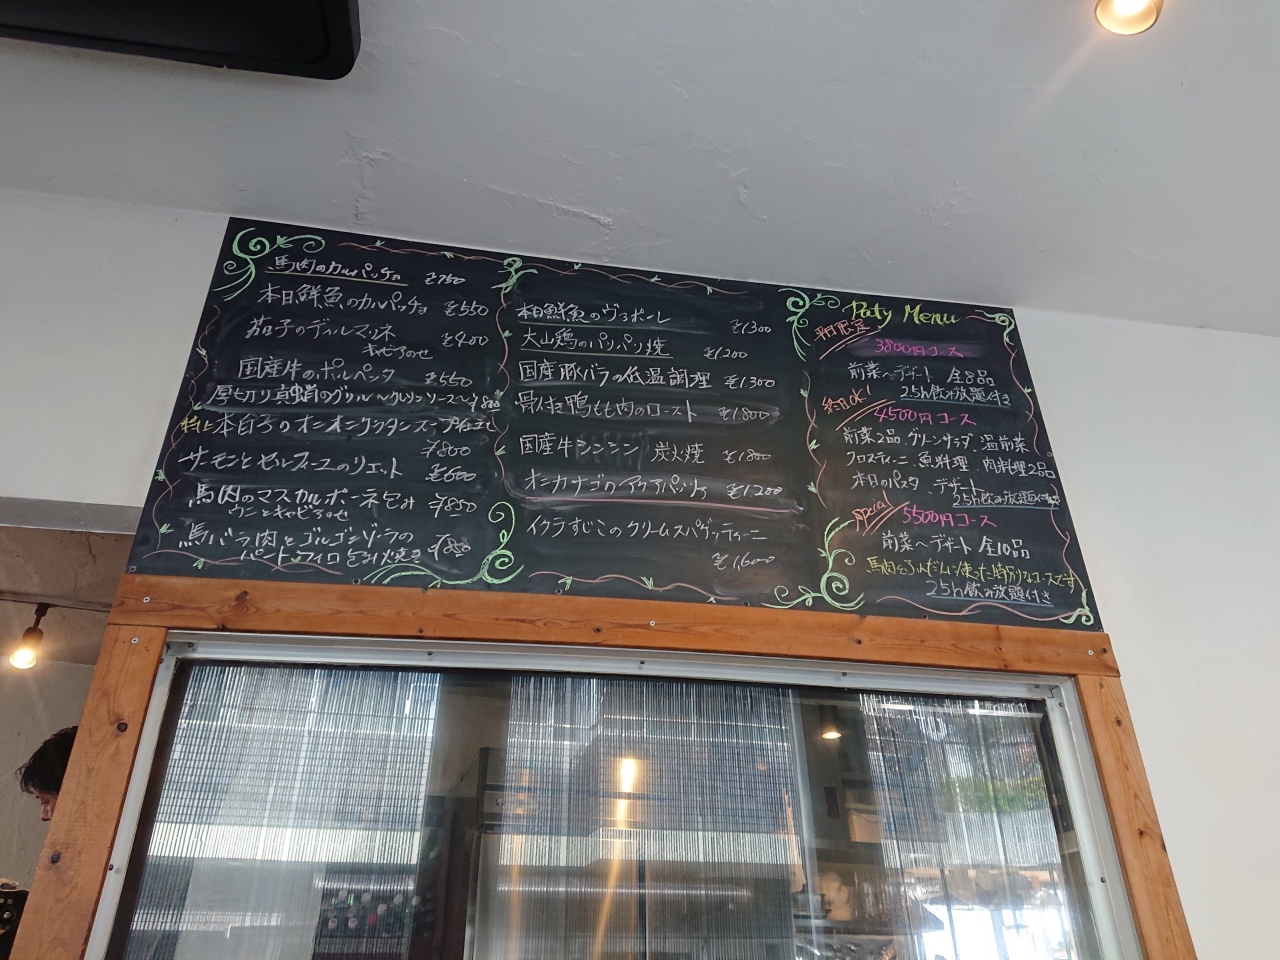 馬肉のカルパッチョ ¥750
本日鮮魚のカルパッチョ ¥550
茄子のディルマリネ ¥400
キャビアのせ
国産牛のポルペッタ ¥550
厚切り真蛸のグリル 〜ソース〜 ¥800
本白子のオニオングラタンスープ仕立て
¥800
サーモンとセルフィーユのリエット ¥600
馬肉のマスカルポーネ包み ¥850
ウニとキャビアのせ
馬バラ肉とゴルゴンゾーラの
パートフィロ包み焼き ¥850
本日鮮魚のヴァポーレ ¥1300
大山鶏のパリパリ焼 ¥1200
国産豚バラの低温調理 ¥1300
骨付き鴨もも肉のロースト ¥1.800
国産牛シンシン 炭火焼 ¥1800
オニカサゴのアクアパッツァ ¥1200
イクラすじこのクリームスパゲッティーニ
¥1,600
Paty Menu
平日限定
3800円コース
前菜〜デザート 全8品
2.5h飲み放題付き
終日OK!
4500円コース
前菜2品 グリーンサラダ、温前菜
クロスティーニ、魚料理、肉料理2品
本日のパスタ、デザート
2.5h飲み放題付き
Special
5500円コース
前菜〜デザート 全10品
馬肉をふんだんに使った特別なコースです
2.5h飲み放題付き